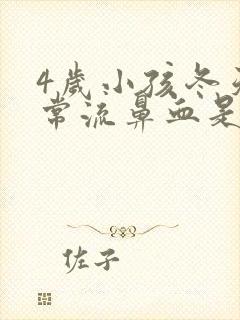 4歲小孩冬
常流鼻血是
佐子